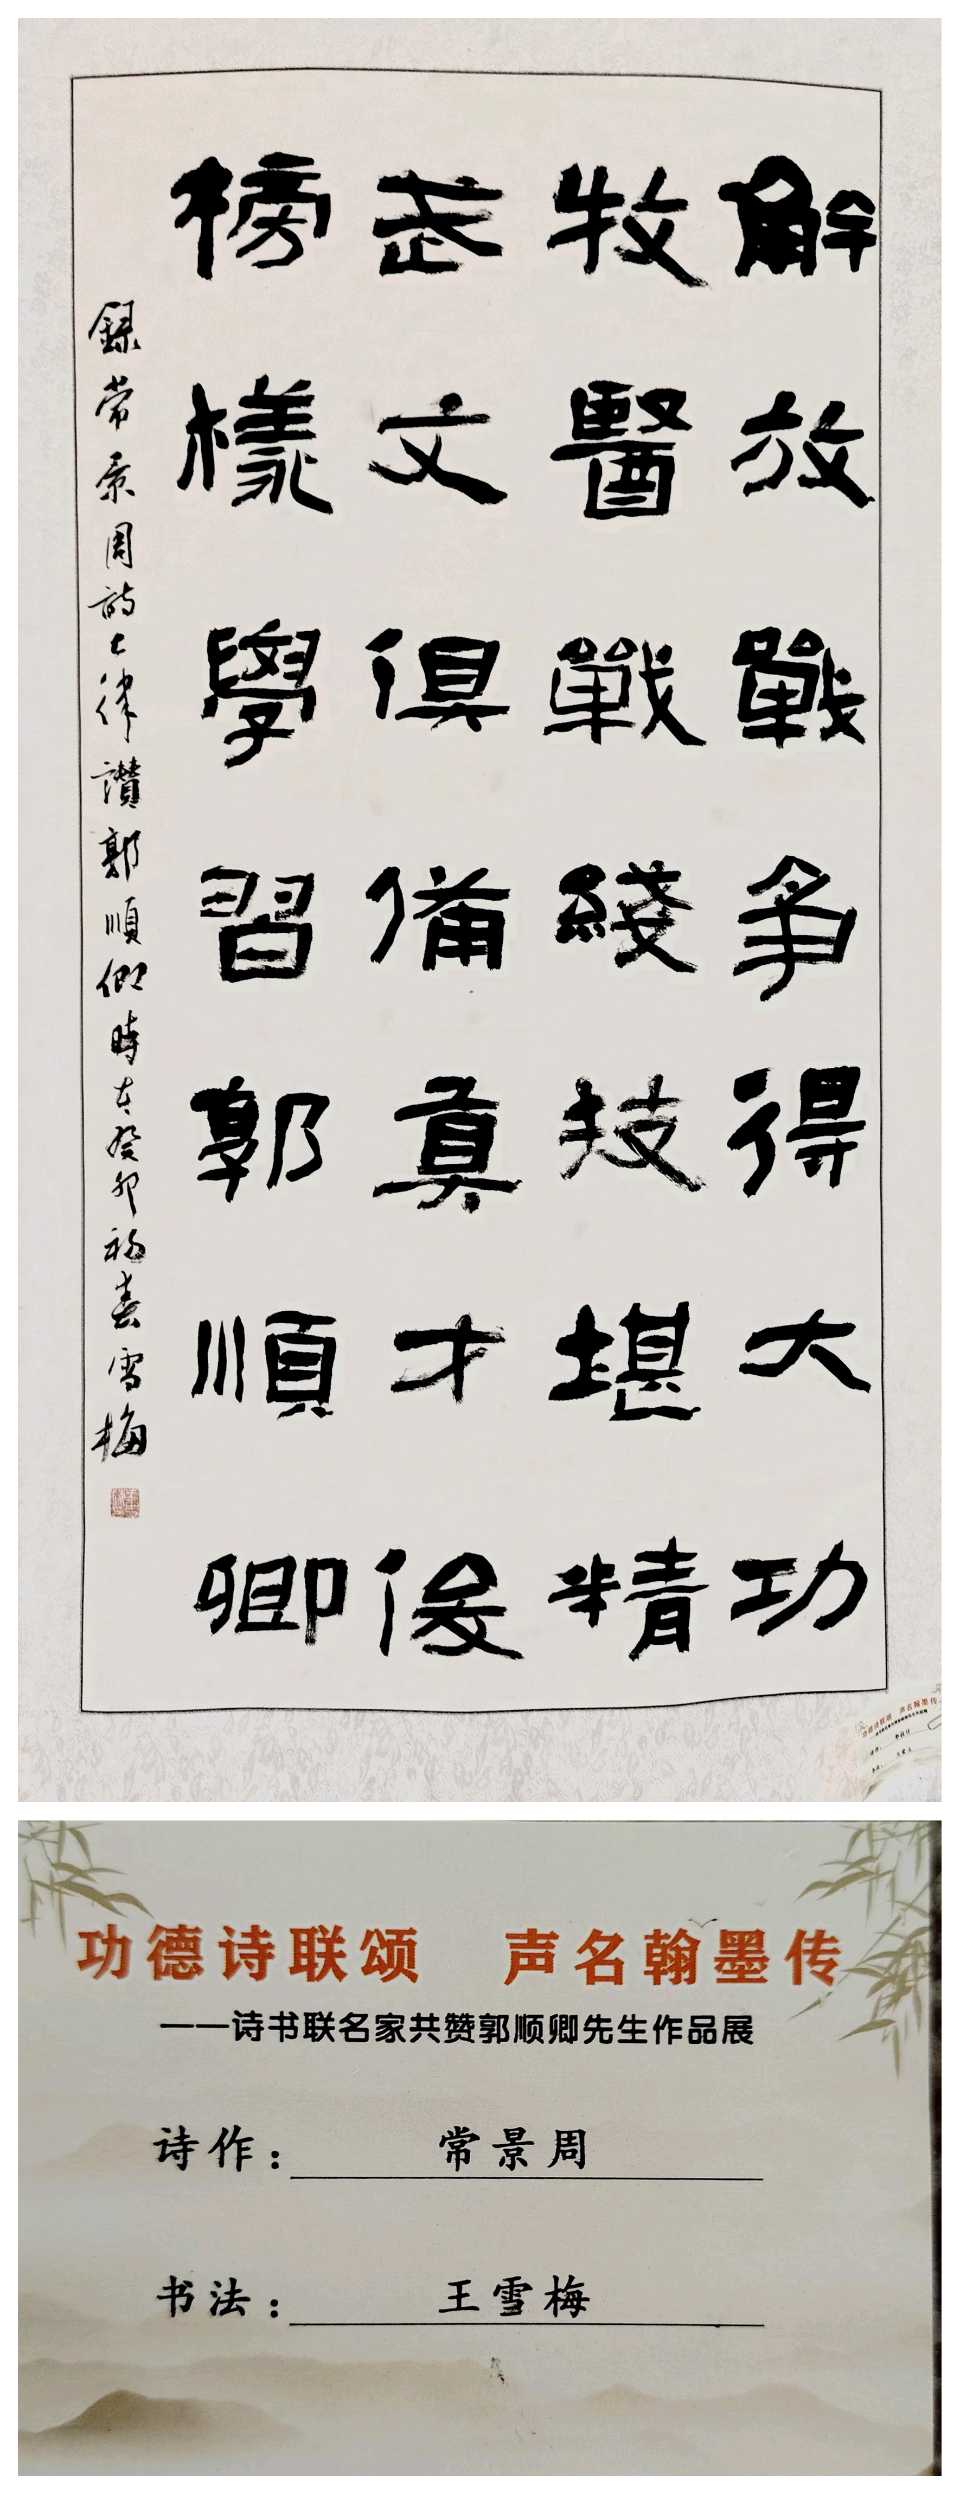 解放戰爭得大功
牧醫戰綫技堪精
武文俱備真才俊
榜樣學習郭順卿
錄常景周詩七律讚郭順卿時在癸卯初春雪梅
功德诗联颂 声名翰墨传
——诗书联名家共赞郭顺卿先生作品展
诗作：常景周
书法：王雪梅